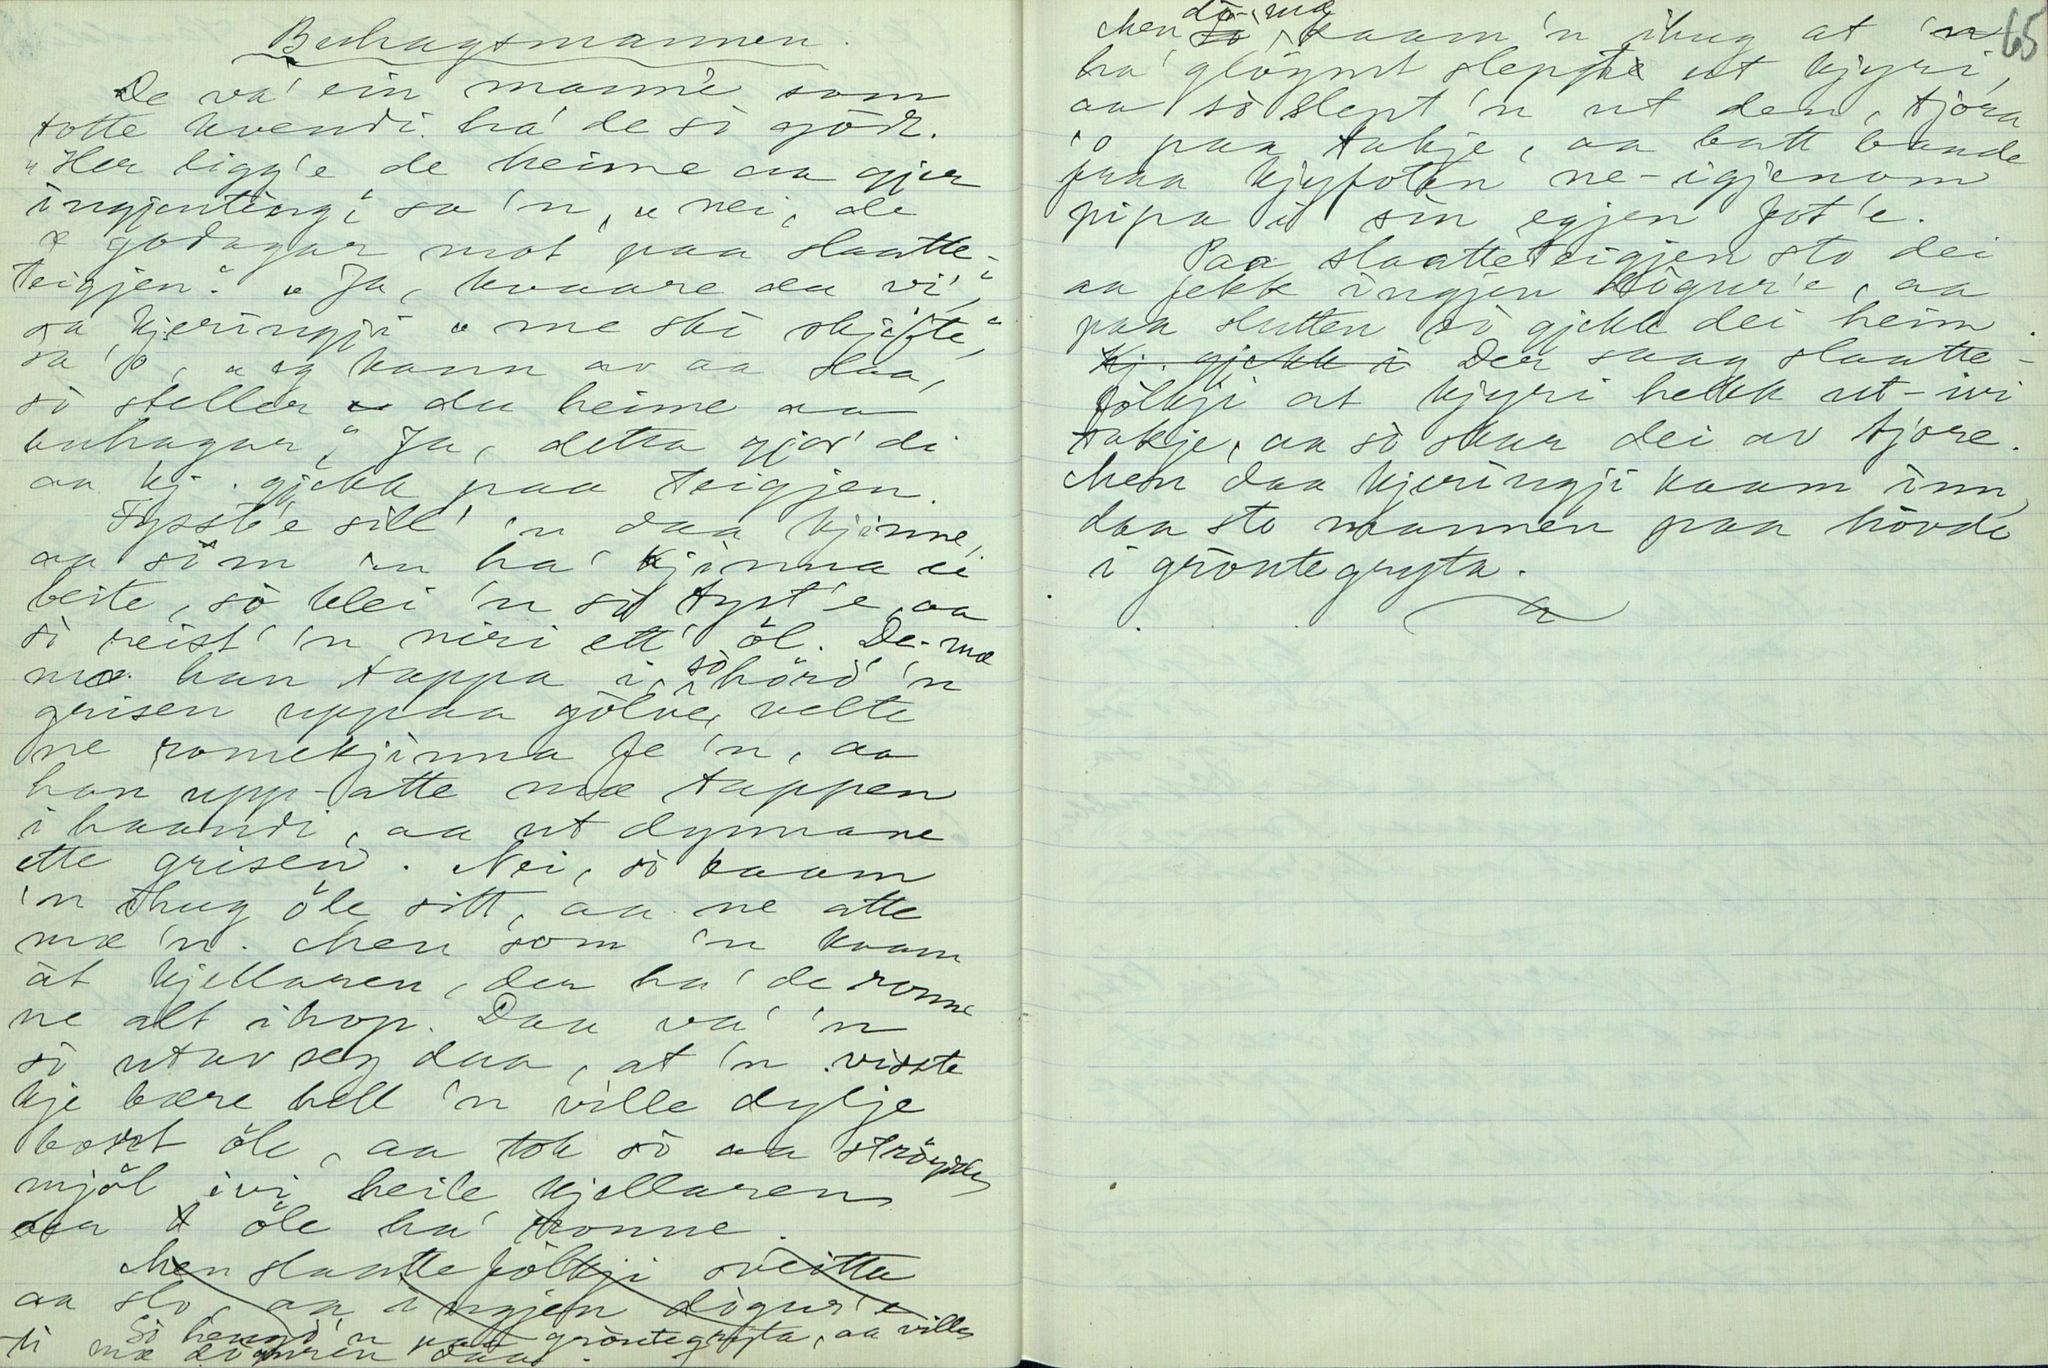 Buhagsmannen.
De va' ein mann'e som
totte kvendi ha' de sò gödt.
"Her ligg'e de heime aa gjer
ingjenting," sa 'n, "nei, de
æ godagar mot paa slaatte-
teigjen." "Ja, kvaare du vi',"
sa kjeringji "me ski skjifte,"
sa 'o, "eg kann av aa slaa,
sò steller du heime aa
buhagar," Ja, detta gjor' di
aa kj. gjekk paa teigjen.
Fysst'e sill' 'n daa kjinne,
aa som 'n ha' kjinna ei
beite, sò blei 'n sò tyst'e, aa
sò reist' 'n niri ett' öl. De-mæ
mæ han tappa i, sò hörd' 'n
grisen uppaa gölve, velte
ne romekjinna fe 'n, aa
han upp-atte mæ tappen
i haandi, aa ut dynnane
ette grisen. Nei, sò kaam
'n ihug öle sitt, aa ne atte
mæ 'n. Men som 'n kaam
åt kjellaren, der ha' de ronne
ne alt ihop. Daa va' 'n
sò utav seg daa, at 'n visste
kje bære hell 'n ville dylje
bort öle, aa tok sò aa ströydde
mjöl ivi heile kjellaren
daa öle ha' ronne.
Men slaattefölkji sveitta
aa slo, aa ingjen dögur'e
Sò hengd' 'n paa gröntegryta, aa ville
ti mæ dögurin daa.
65
Men dö-mæ kaam 'n ihug at 'n
ha' glöymt sleppe ut kjyri,
aa sò slept 'n ut den, tjöra
'o paa takje, aa batt bande
fraa kjyfoten ne-igjenom
pipa i sin egjen fot'e.
Paa slaatteteigjen sto dei
aa fekk ingjen dögur'e, aa
paa slutten sò gjekk dei heim.
Kj. gjekk i Der saag slaatte-
fölkji at kjyri hekk ut-ivi
takje, aa sò skar dei av tjore.
Men daa kjeringji kaam inn,
daa sto mannen paa hövde
i gröntegryta.